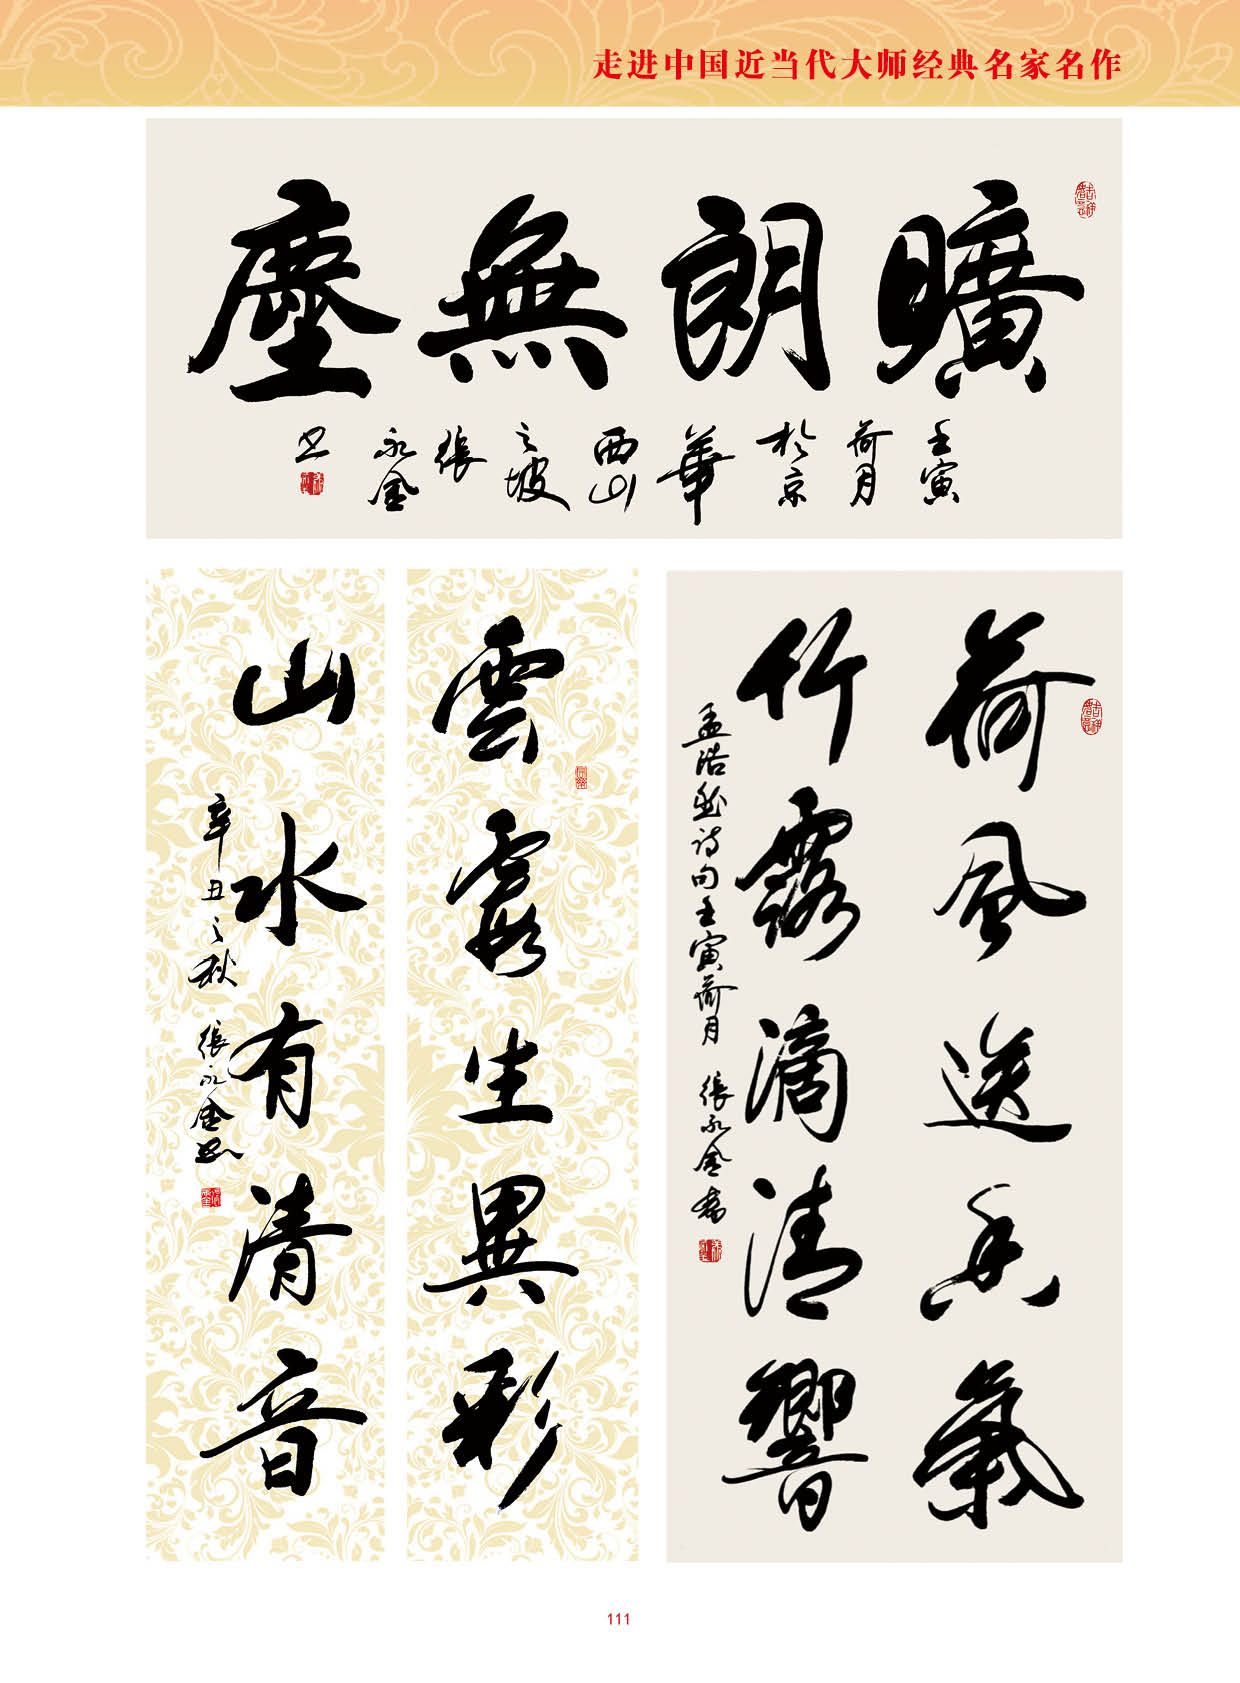 走进中国近当代大师经典名家名作
曠朗無塵
壬寅
荷月
於京
華
西山
之坡
張
永金
書
荷風送香氣
竹露滴清響
孟浩然詩句壬寅荷月 張永金書
雲霞生異彩
山水有清音
辛丑之秋 張永金書
111